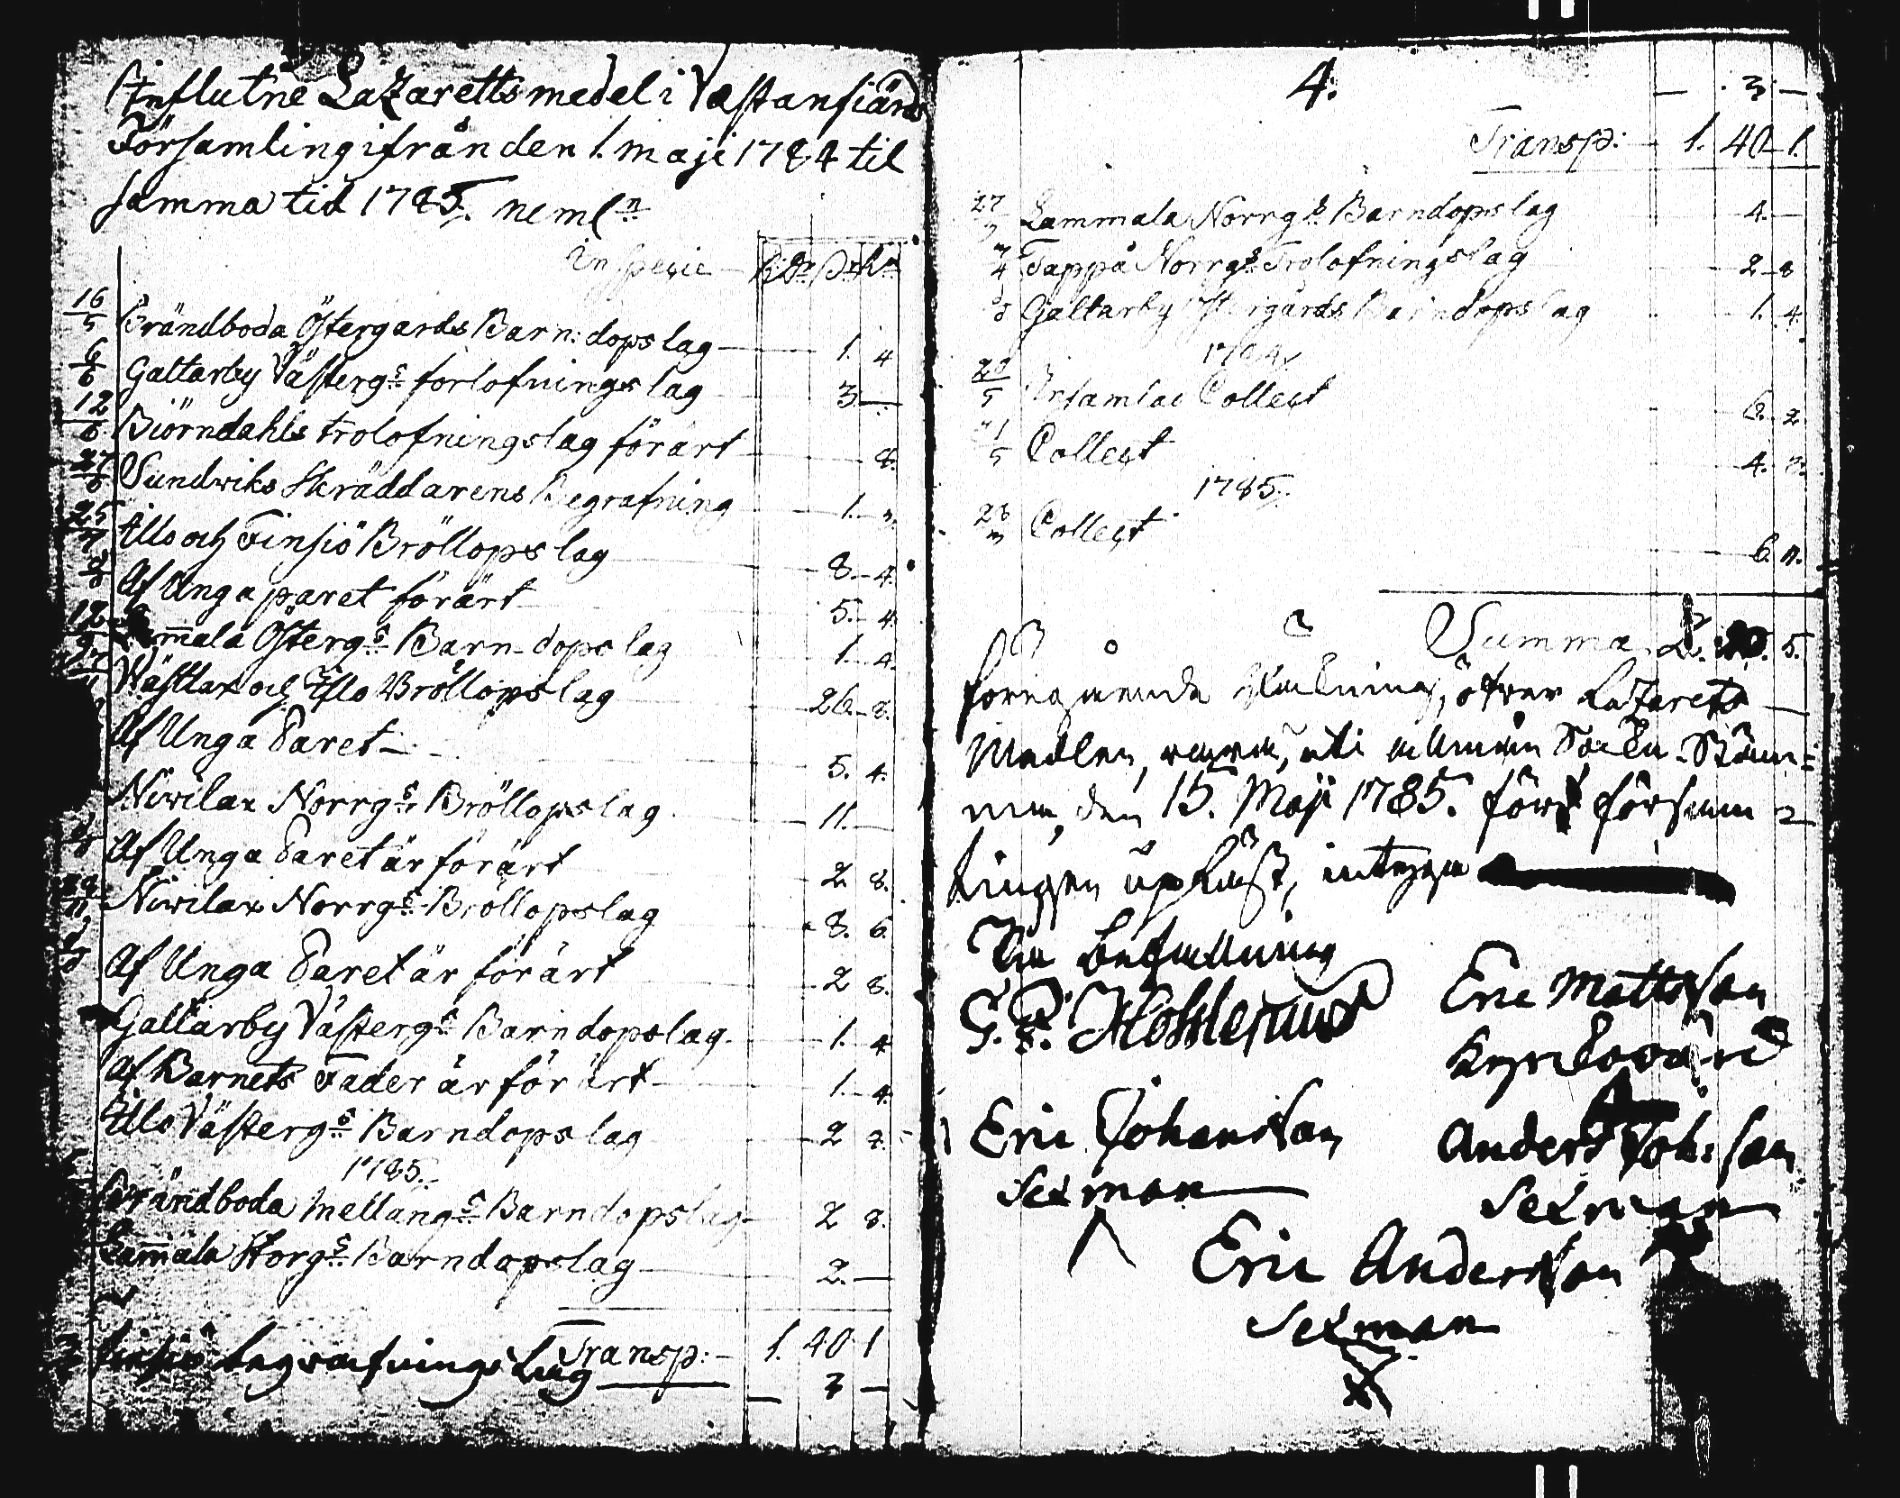 Influtne Lazarettsmedel i Västanfiärds
Församling ifrån den 1. maji 1784 til
samma tid 1785. neml:n
In Specie R:dr s: r:n
16/5 Brändboda Östergårds Barn:dopslag 1. 4
6/6 Galtarby Västerg:s förlofningslag 3 —
12/6 Biörndahls trolofningslag förärt 8.
27/6 Sundwiks Skräddarens Begrafning 1.
25/7 Illo och Finsiö Bröllopslag 8. 4.
Af Unga paret förärt 5. 4.
12/9 Österg:s Barn-dopslag 1. 4.
Wästlax och Illo Bröllopslag 26. 8.
Af Unga Paret 5. 4.
Niwilax Norrg:s Bröllopslag 11. —
Af Unga Paret är förärt 2 8.
Niwilax Norrg:s Bröllopslag 8. 6.
Af Unga Paret är förärt 2 8.
Galtarby Västerg:s Barndopslag 1. 4
Af Barnets Fader är förärt 1. 4.
Illo Västerg:s Barndopslag 2
1785.
Brändboda Mellang:s Barndopslag 2 8.
Lam̄ala Storg:s Barndopslag 2. —
Transp: 1. 40 1
Finsiö begrafnings Lag — 3 —
4. — 3 —
Transp: 1. 40 1.
Lammala Norrg:s Barndopslag 4. —
Tappå Norrg:s Trolofningslag 2 8
Galtarby Östergårds Barndopslag 1. 4.
1784
Insamlad Collect 6. 2
Collect 4.
1785.
28 Collect 6.
Summa 2. 5.
föregående Räkning, öfver Lazaretts
Medlen, vara, uti allmän Sockn-Stäm=
ma, den 15. Maji 1785. för försam
lingen upläst, intyga
På befallning
G. Hosslerius
Eric Mattsson
Kyrckovärd
Eric Johansson
Sexman
Anders Joh:sson
Sexman
Eric Andersson
Sexman